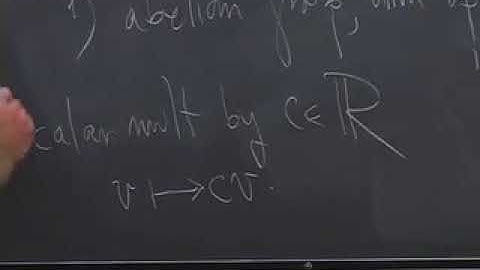 1) abelian group,
calar mult by c∈ℝ
v ↦ cv.